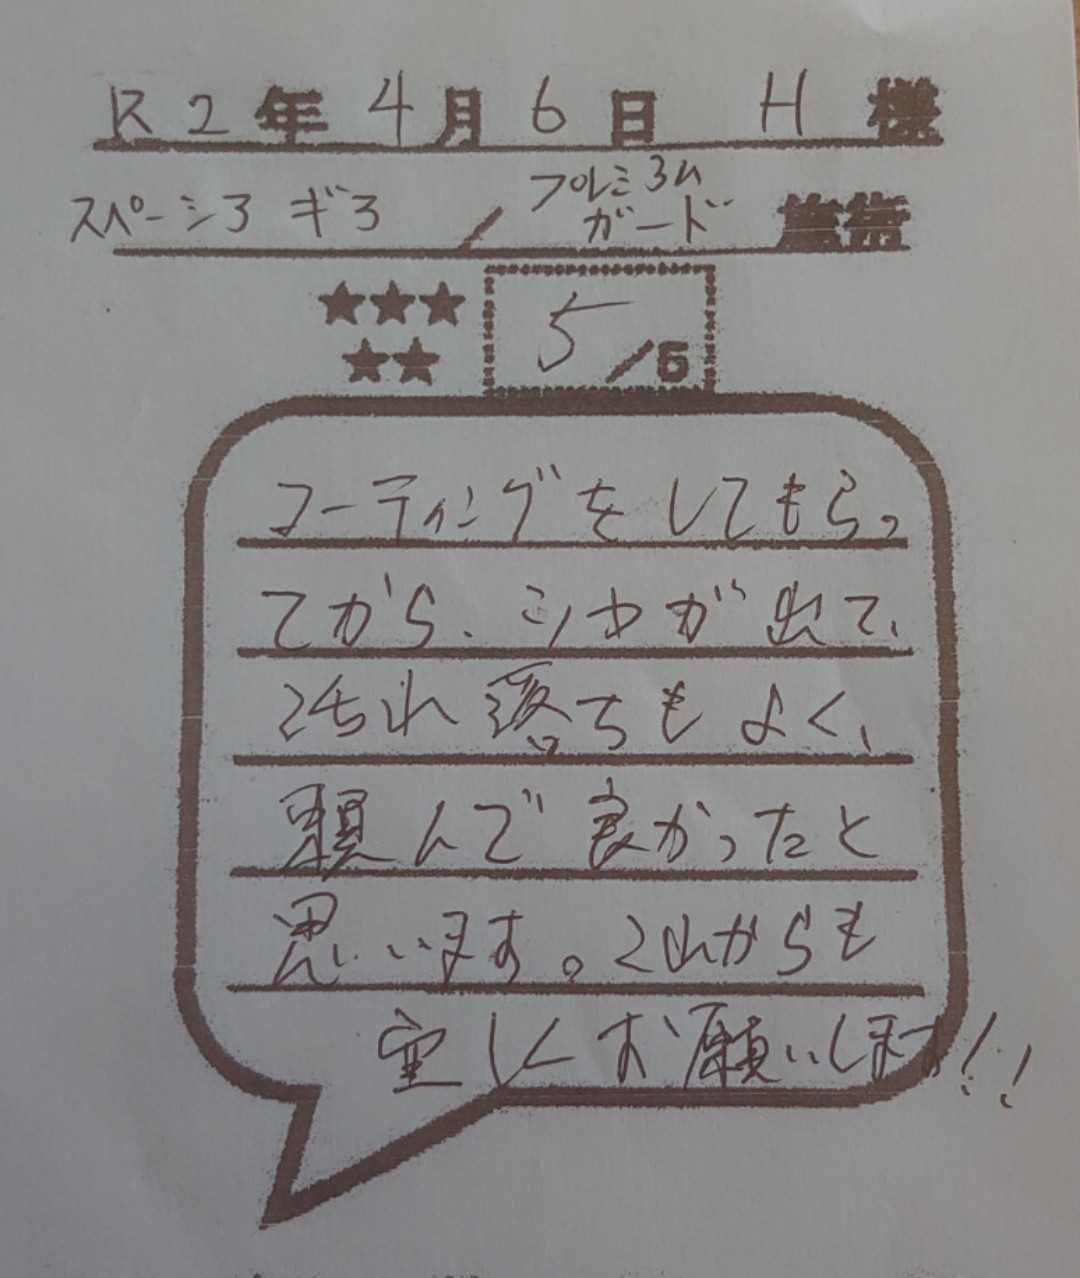 R2年4月6日 H様
スペーシア ギア / プレミアム ガード 施術
★★★
★★
5/5
コーティングをしてもらっ
てから、ツヤが出て、
汚れ落ちもよく、
頼んで良かったと
思います。これからも
宜しくお願いします!!